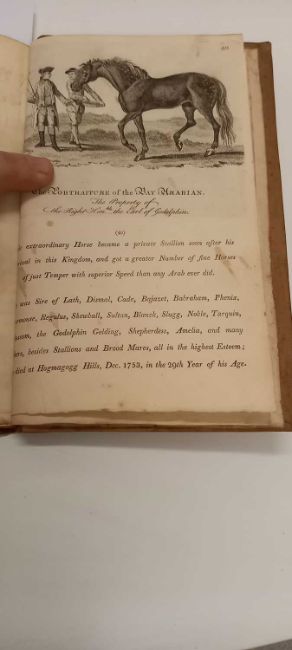 The PORTRAITURE of the BAY ARABIAN.
The Property of
the Right Hon.ble the Earl of Godolphin.
(a)
extraordinary Horse became a private Stallion soon after his
in this Kingdom, and got a greater Number of fine Horses
of just Temper with superior Speed than any Arab ever did.
was Sire of Lath, Dismal, Cade, Bajazet, Babraham, Phenix,
Regulus, Skewball, Sultan, Blank, Slugg, Noble, Tarquin,
the Godolphin Gelding, Shepherdess, Amelia, and many
besides Stallions and Brood Mares, all in the highest Esteem;
died at Hogmagogg Hills, Dec. 1753, in the 29th Year of his Age.